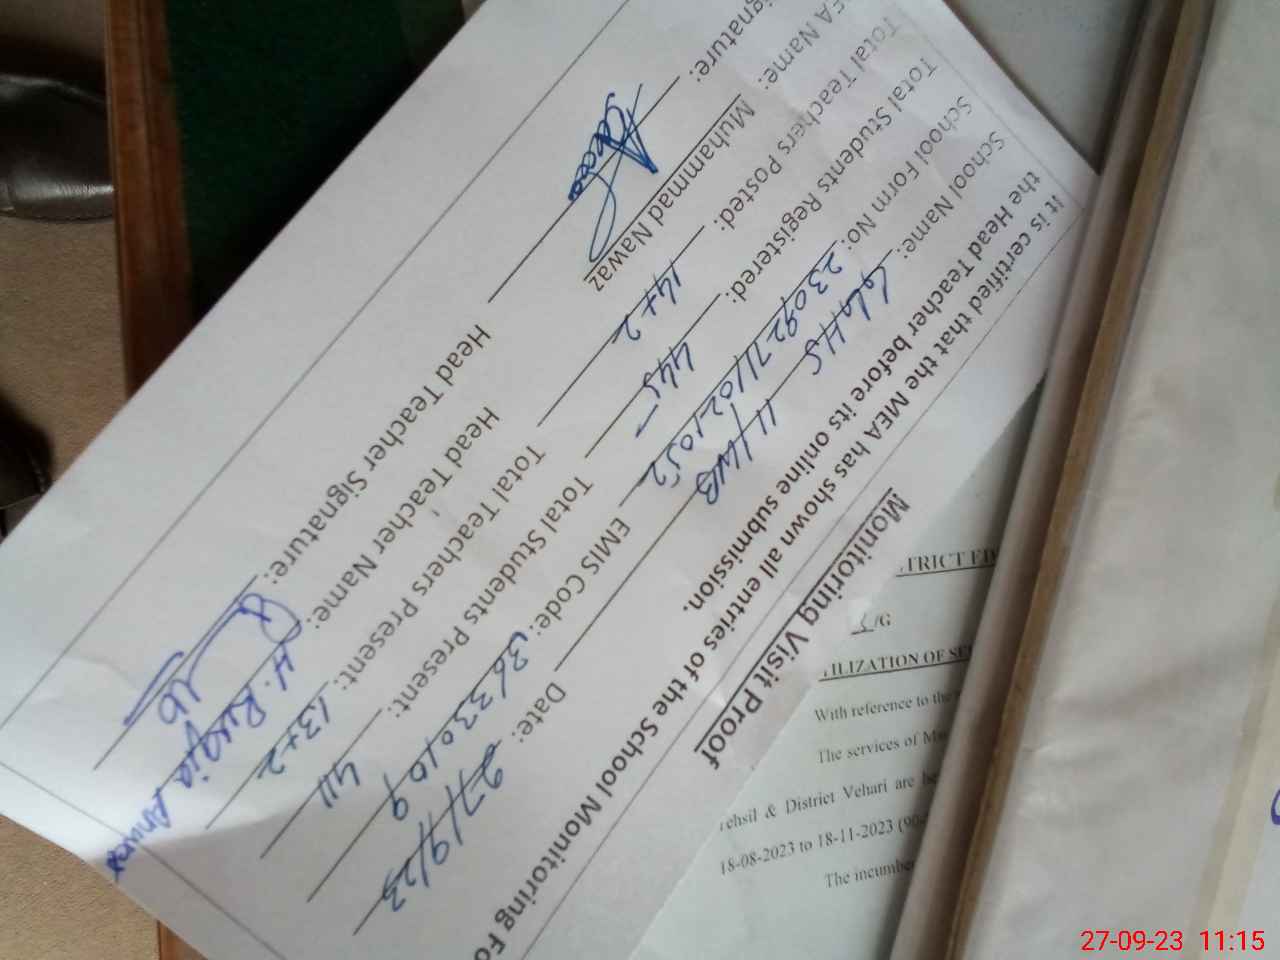 Monitoring Visit Proof
It is certified that the MEA has shown all entries of the School Monitoring Fo
the Head Teacher before its online submission.
School Name: GGHHS 11/WB Date: 27/9/23
School Form No: 23092711021052 EMIS Code: 36330109
Total Students Registered: 445 Total Students Present: 411
Total Teachers Posted: 14+2 Total Teachers Present: 13+2
EA Name: Muhammad Nawaz Head Teacher Name: H. Ruqqia Anwar
gnature: Head Teacher Signature:
TRICT ED
/G
ILIZATION OF SE
With reference to the
The services of
ehsil & District Vehari are
18-08-2023 to 18-11-2023 (90
The incumbe
27-09-23 11:15